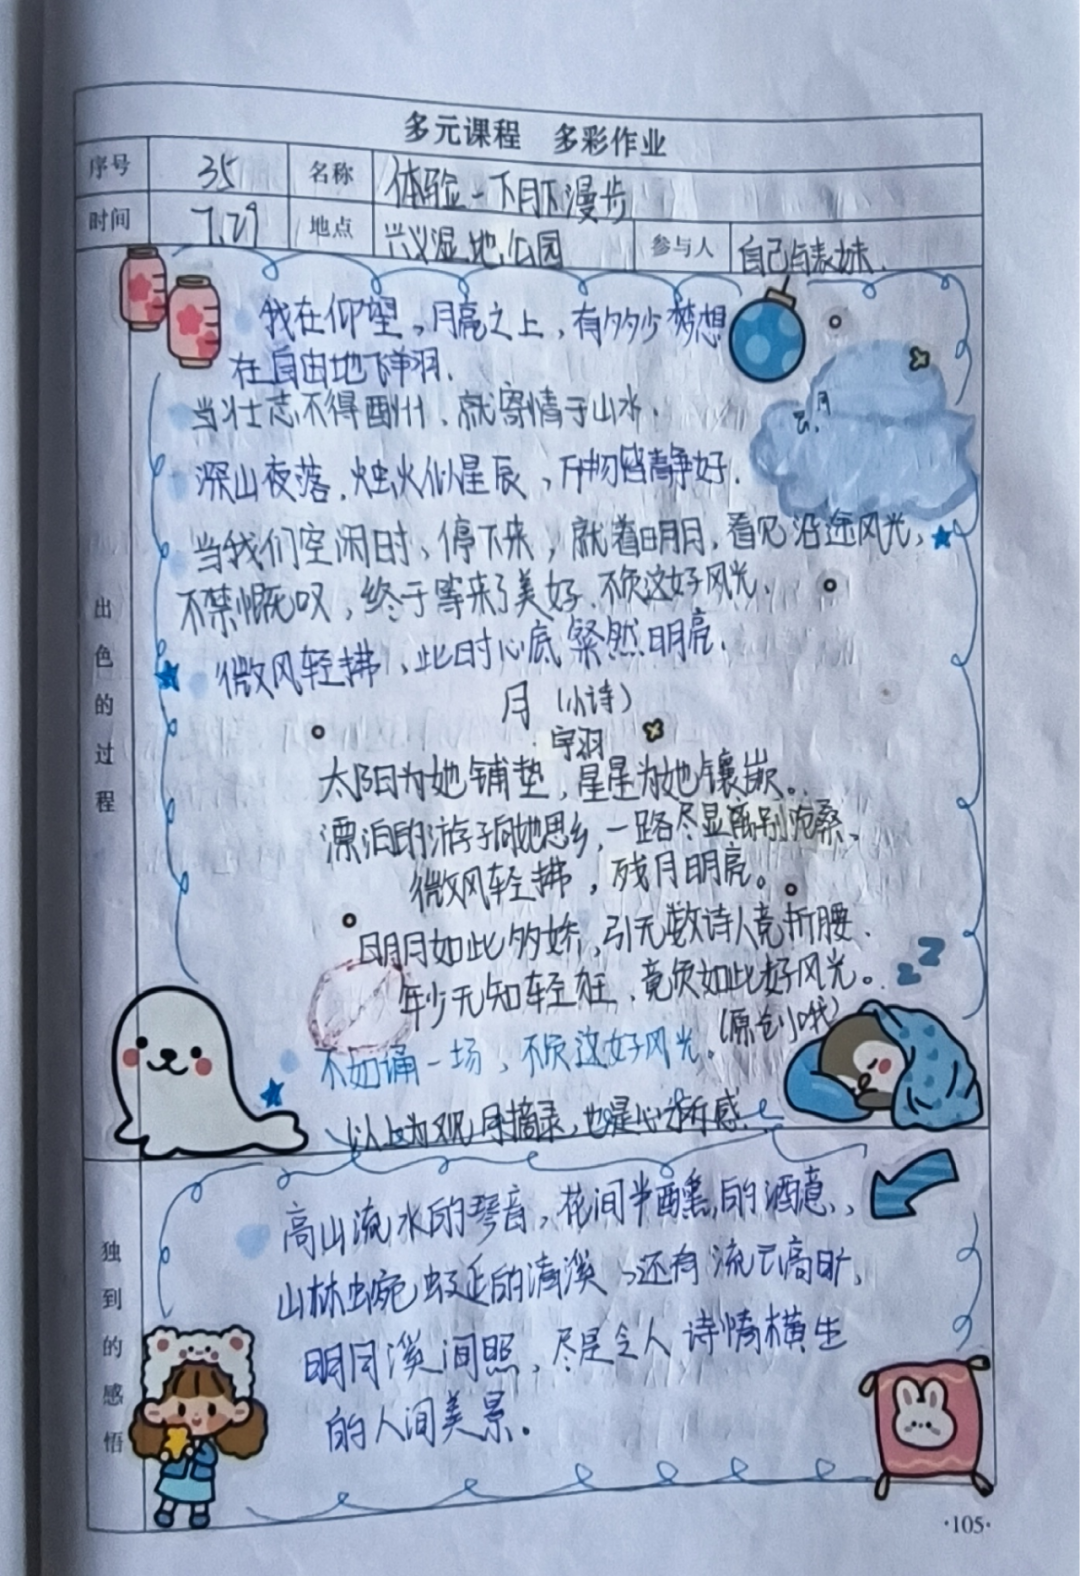 多元课程 多彩作业
序号 35 名称 体验一下月下漫步
时间 7.29 地点 兴义湿地公园 参与人 自己与表妹.
出色的过程
我在仰望,月亮之上,有多少梦想
在自由地飞翔.
当壮志不得酬州、就寄情于山水.
云,月
深山夜落,烛火似星辰,万物皆静好.
当我们空闲时,停下来,就着明月,看见沿途风光,
不禁慨叹,终于等来了美好、不负这好风光.
微风轻拂,此时心底粲然明亮.
月(小诗)
宇羽
太阳为她铺垫,星星为她镶嵌。
漂泊的游子向她思乡,一路尽显离别沧桑、
微风轻拂,残月明亮。
明月如此多娇,引无数诗人竞折腰.
年少无知轻狂,竟负如此好风光。
(原创小哦)
不如诵一场,不负这好风光。
zz
以上为观月摘录,也是心之所感.
独到的感悟
高山流水的琴音,花间半醺的酒意,
山林蜿蜒的清溪,还有流云高旷,
明月溪间照,尽是令人诗情横生
的人间美景。
·105·